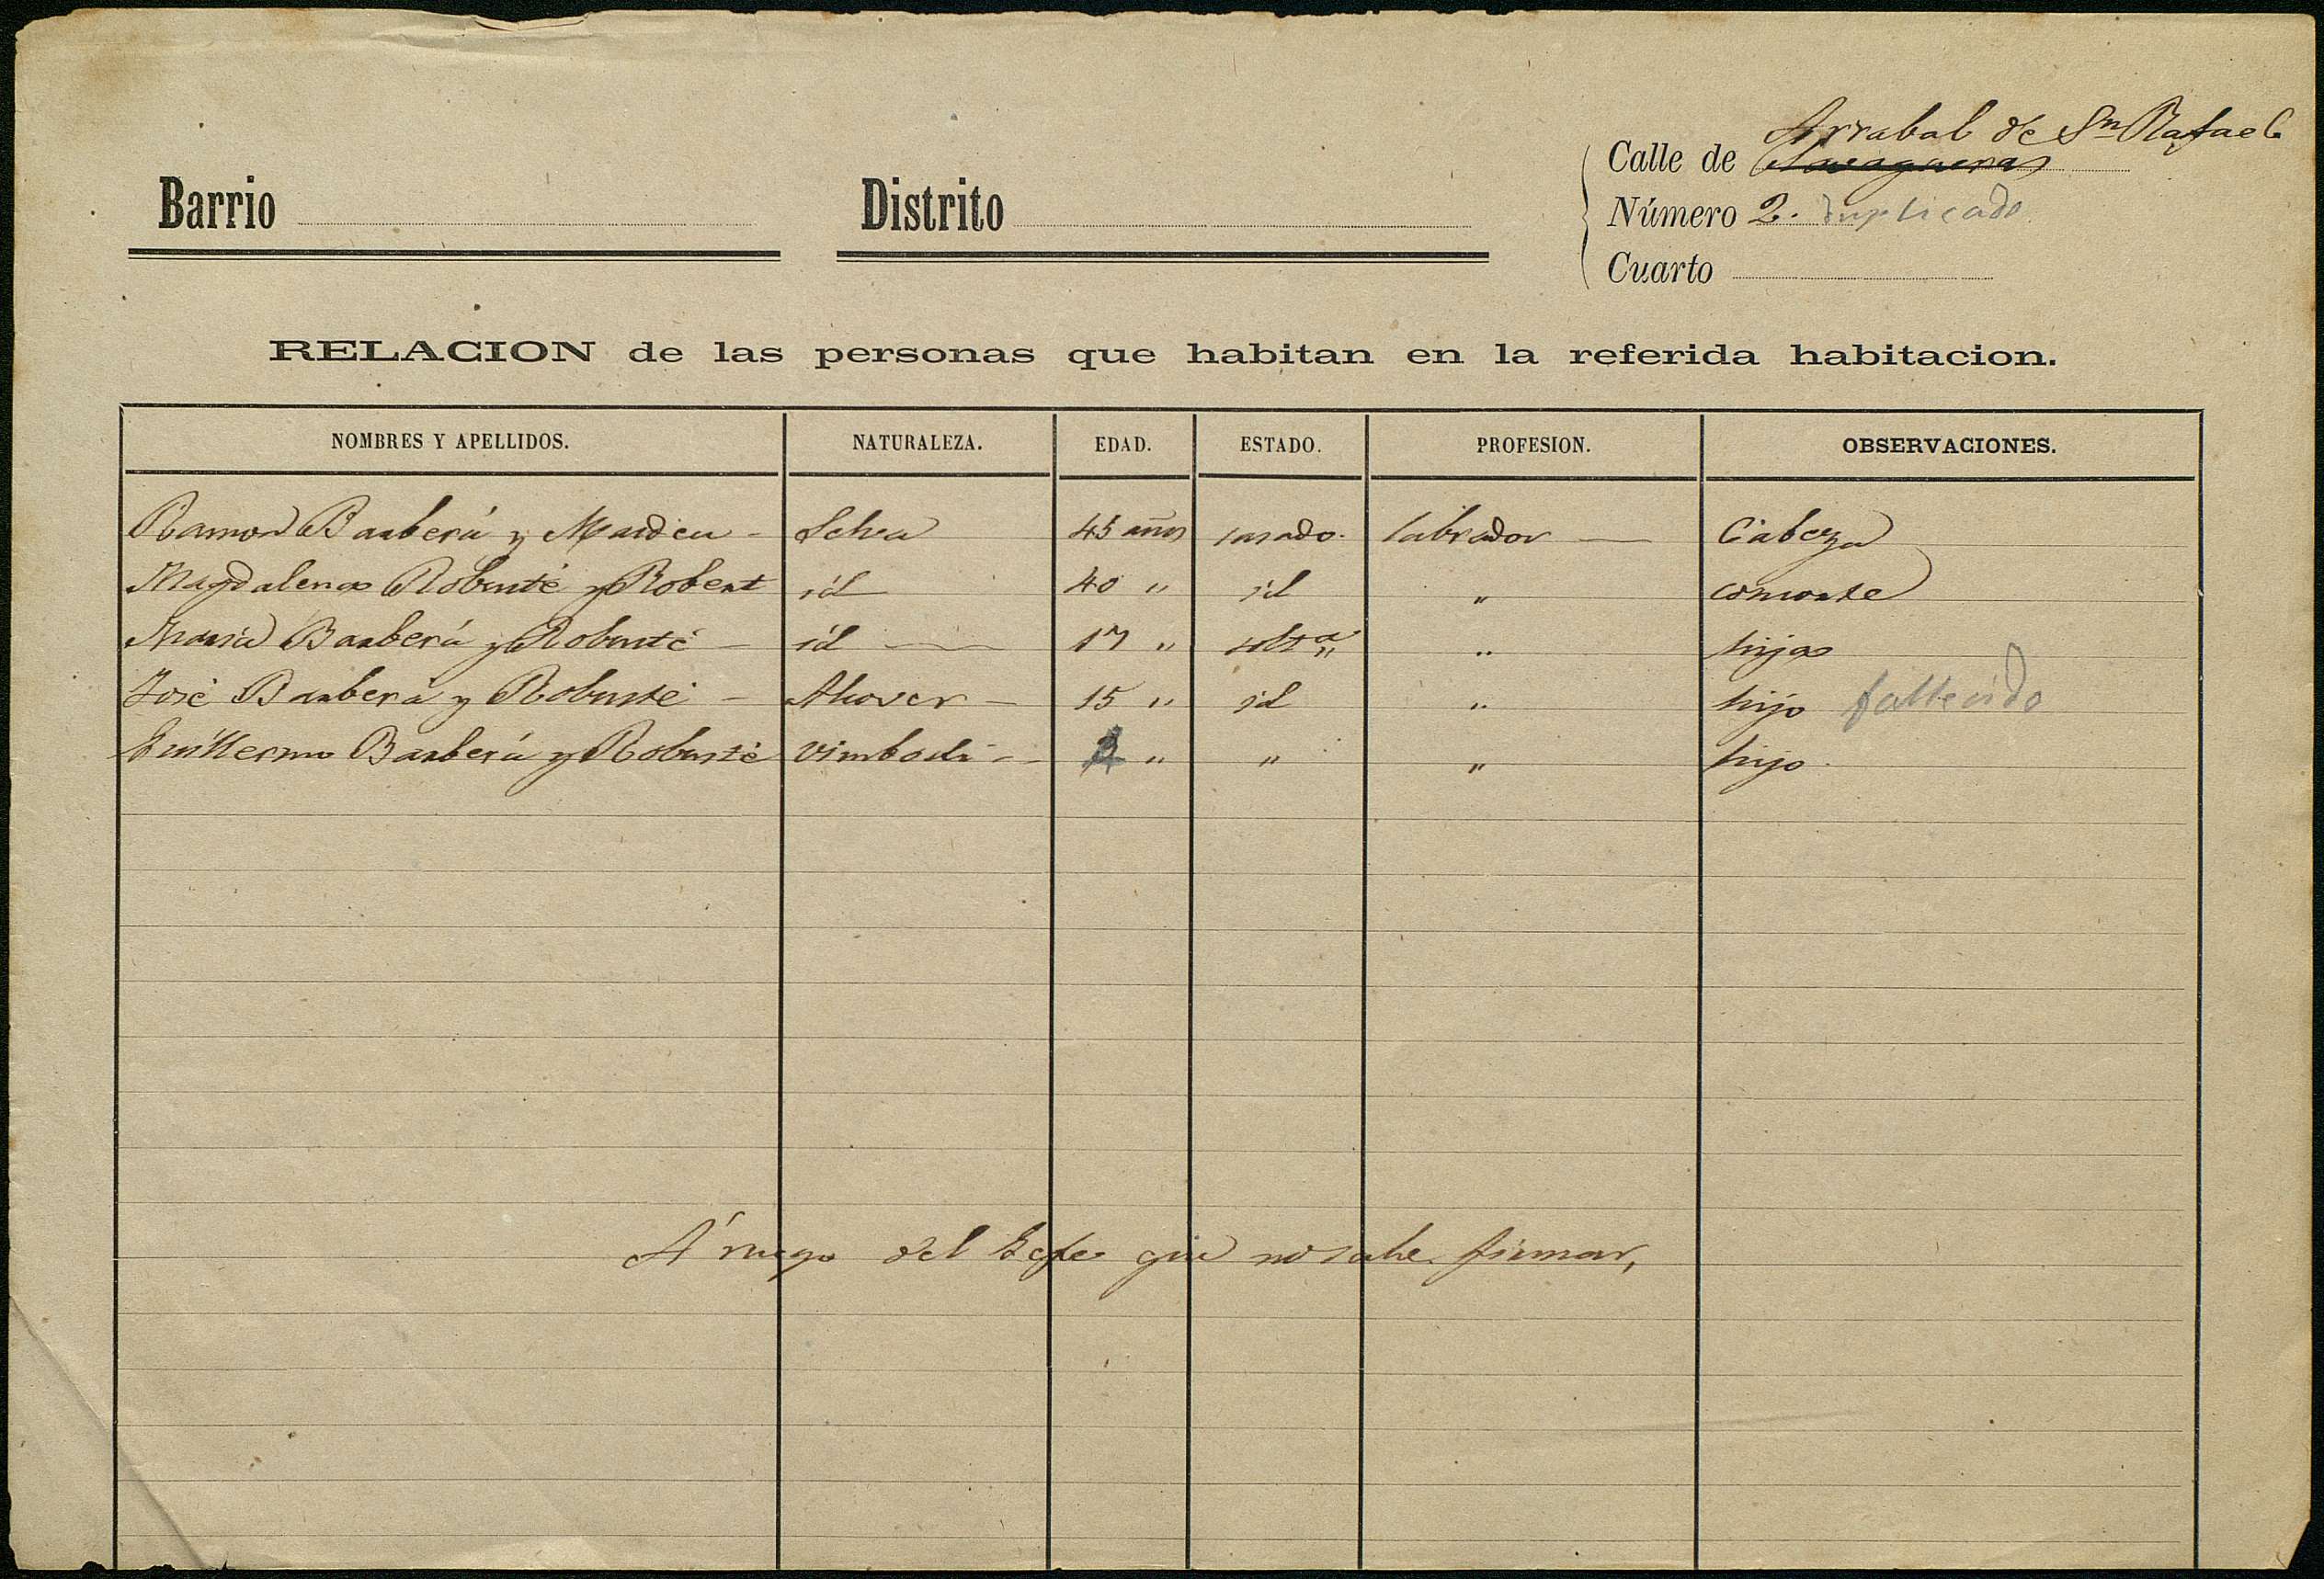 Arrabal de Sn Rafael
Calle de
Barrio Distrito Número 2. duplicado
Cuarto
RELACION de las personas que habitan en la referida habitacion.
NOMBRES Y APELLIDOS. NATURALEZA. EDAD. ESTADO. PROFESION. OBSERVACIONES.
Ramon Barberá y Masdeu - Selva 45 años casado. labrador — Cabeza
Magdalena Robusté y Robert id 40 " id " consorte
Maria Barberá y Robusté - id — 17 " solta " hija
José Barberá y Robusté - Alcover - 15 " id " hijo fallecido
Guillermo Barberá y Robusté Vimbodi - " " " hijo.
Á ruego del Gefe que no sabe firmar,